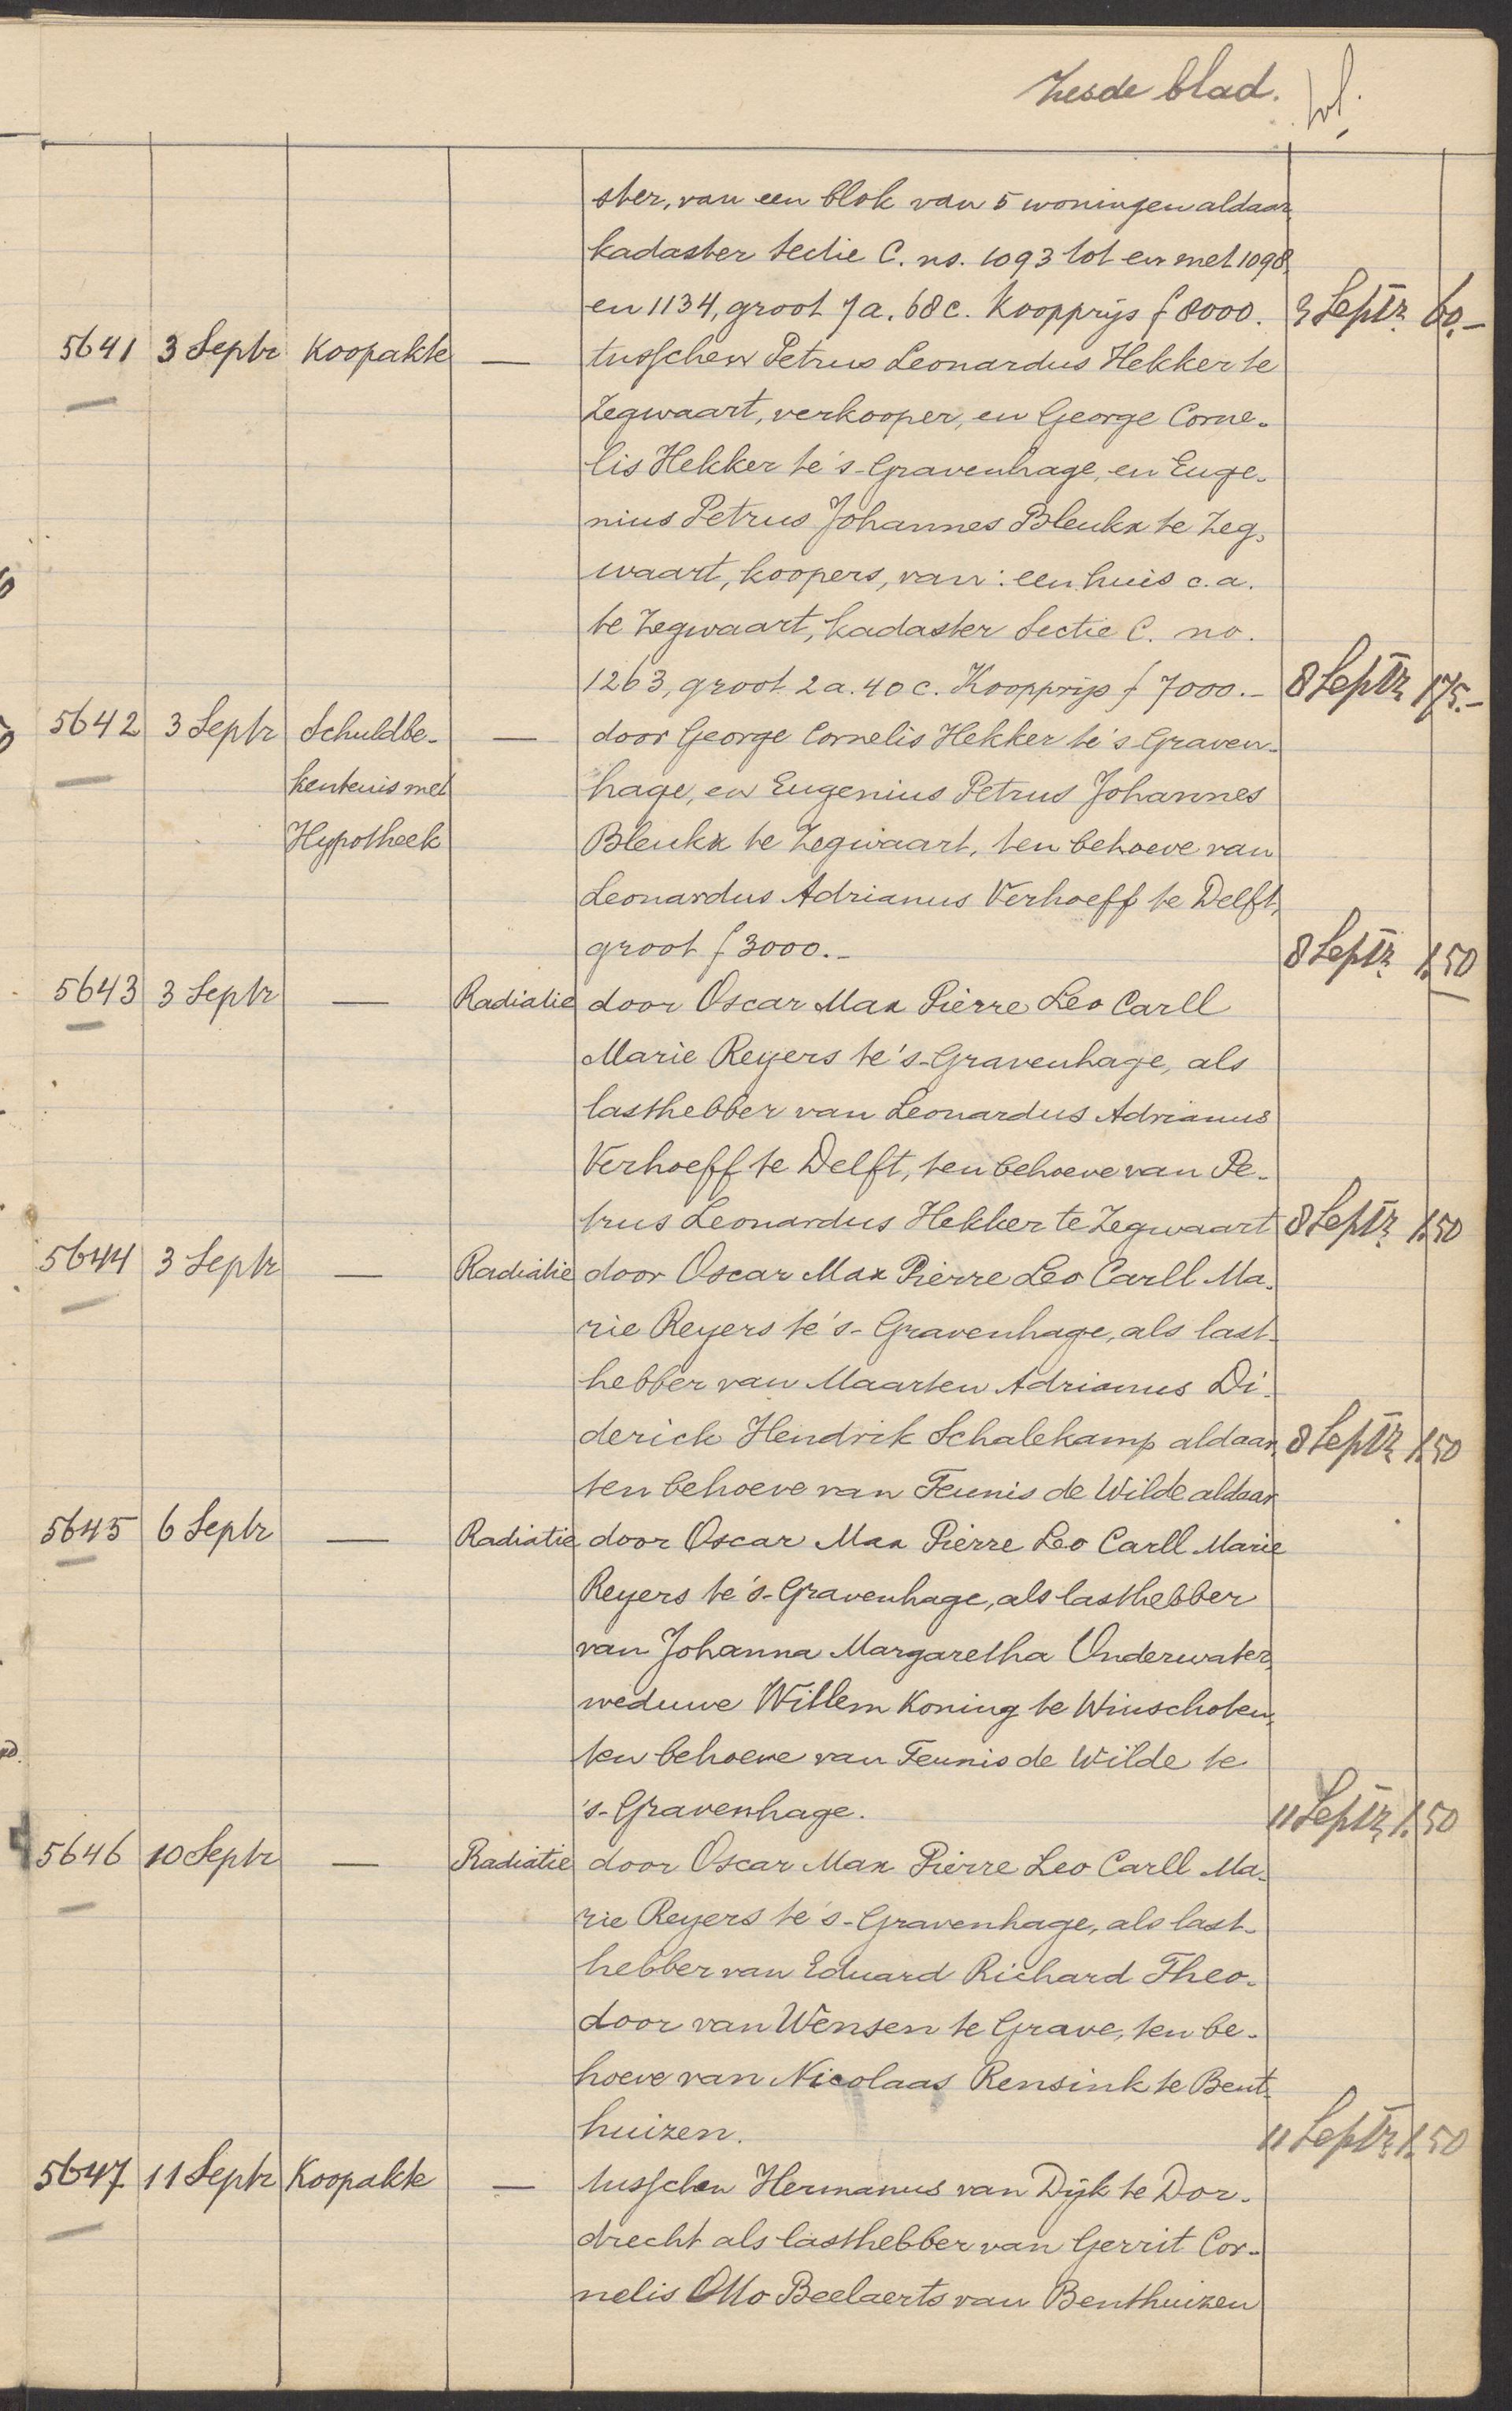 Zesde blad.
ster, van een blok van 5 woningen aldaar,
kadaster sectie C. ns. 1093 tot en met 1098
en 1134, groot 7a. 68c. Koopprijs f 8000. 3 Septr 60.-
5641 3 Septr Koopakte — tusschen Petrus Leonardus Hekker te
Zegwaart, verkooper, en George Corne-
lis Hekker te 's-Gravenhage, en Euge-
nius Petrus Johannes Bleukx te Zeg-
waart, koopers, van: een huis c.a.
te Zegwaart, kadaster Sectie C. no.
1263, groot 2a. 40c. Koopprijs f 7000.- 8 Septr 175.-
5642 3 Septr Schuldbe- — door George Cornelis Hekker te 's-Graven-
kentenis met hage, en Eugenius Petrus Johannes
Hypotheek Bleukx te Zegwaart, ten behoeve van
Leonardus Adrianus Verhoeff te Delft,
groot f 3000.- 8 Septr 1.50
5643 3 Septr — Radiatie door Oscar Max Pierre Leo Carll
Marie Reyers te 's-Gravenhage, als
lasthebber van Leonardus Adrianus
Verhoeff te Delft, ten behoeve van Pe-
trus Leonardus Hekker te Zegwaart 8 Septr 1.50
5644 3 Septr — Radiatie door Oscar Max Pierre Leo Carll Ma-
rie Reyers te 's-Gravenhage, als last-
hebber van Maarten Adrianus Di-
derich Hendrik Schalekamp aldaar, 8 Septr 1.50
ten behoeve van Teunis de Wilde aldaar
5645 6 Septr — Radiatie door Oscar Max Pierre Leo Carll Marie
Reyers te 's-Gravenhage, als lasthebber
van Johanna Margaretha Onderwater,
weduwe Willem Koning te Winschoten,
ten behoeve van Teunis de Wilde te
's-Gravenhage. 11 Septr 1.50
5646 10 Septr — Radiatie door Oscar Max Pierre Leo Carll Ma-
rie Reyers te 's-Gravenhage, als last-
hebber van Eduard Richard Theo-
door van Wensen te Grave, ten be-
hoeve van Nicolaas Rensink te Bent-
huizen. 11 Septr 1.50
5647 11 Septr Koopakte — tusschen Hermanus van Dijk te Dor-
drecht als lasthebber van Gerrit Cor-
nelis Otto Beelaerts van Benthuizen